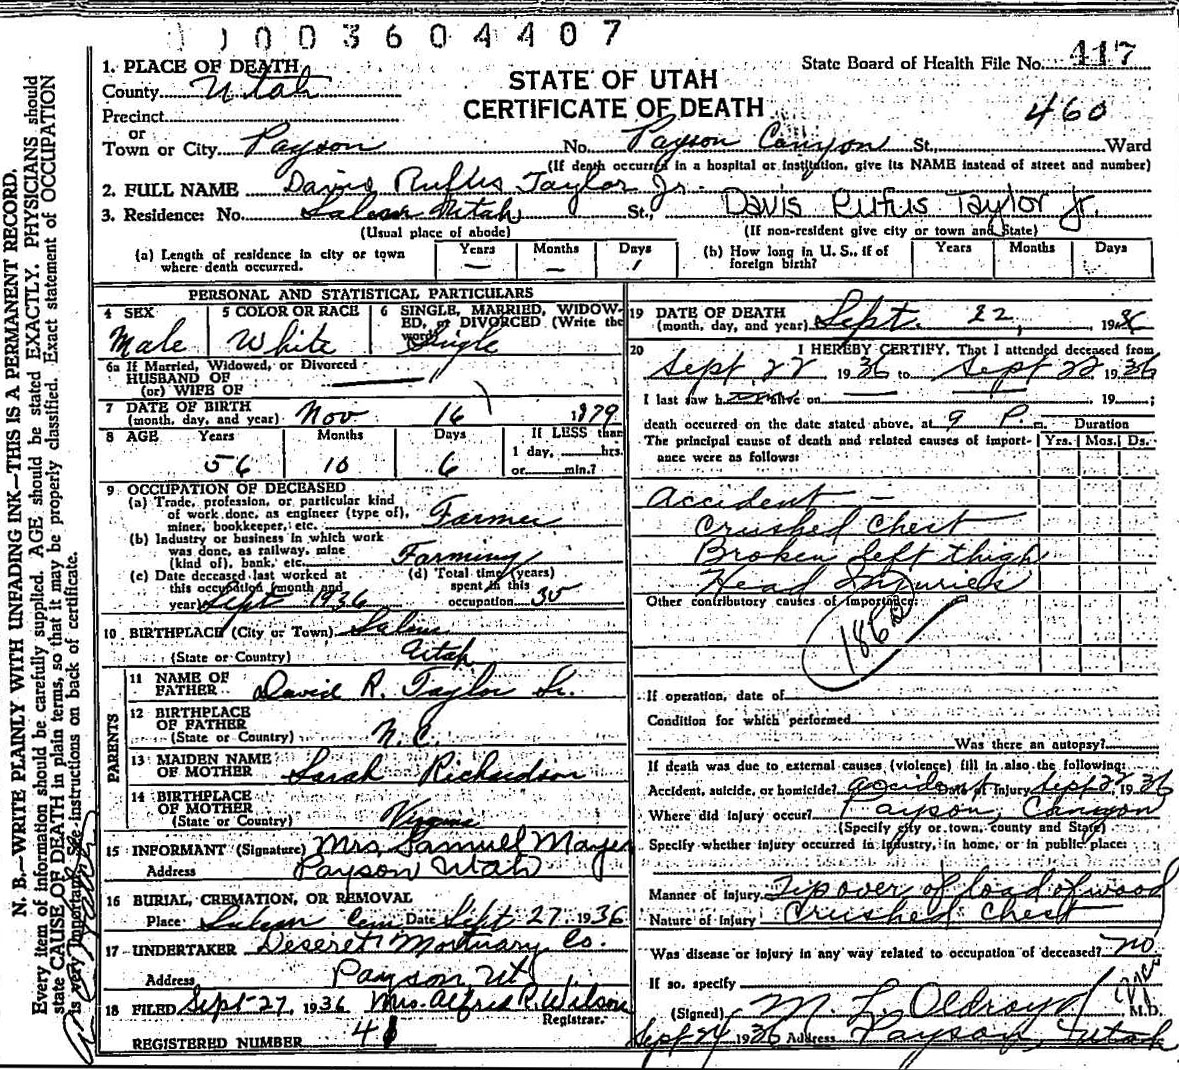 0 0 3 6 0 4 4 0 7
1. PLACE OF DEATH
County Utah
Precinct
or
Town or City Payson No. Payson Canyon St. Ward
STATE OF UTAH
CERTIFICATE OF DEATH
State Board of Health File No. 417
460
(If death occurred in a hospital or institution, give its NAME instead of street and number)
2. FULL NAME Davis Rufus Taylor Jr.
3. Residence: No. Salem Utah St., Davis Rufus Taylor Jr.
(Usual place of abode) (If non-resident give city or town and State)
(a) Length of residence in city or town where death occurred. Years — Months — Days 1
(b) How long in U. S., if of foreign birth? Years Months Days
PERSONAL AND STATISTICAL PARTICULARS
4 SEX Male
5 COLOR OR RACE White
6 SINGLE, MARRIED, WIDOWED, or DIVORCED (Write the word) Single
6a If Married, Widowed, or Divorced
HUSBAND OF
(or) WIFE OF
7 DATE OF BIRTH
(month, day, and year) Nov 16 1879
8 AGE Years 56 Months 10 Days 6 If LESS than
1 day, hrs.
or min.?
9 OCCUPATION OF DECEASED
(a) Trade, profession, or particular kind
of work done, as engineer (type of),
miner, bookkeeper, etc. Farmer
(b) Industry or business in which work
was done, as railway, mine
(kind of), bank, etc. Farming
(c) Date deceased last worked at
this occupation (month and
year) Sept 1936
(d) Total time (years)
spent in this
occupation 30
10 BIRTHPLACE (City or Town) Salem
(State or Country) Utah
PARENTS
11 NAME OF
FATHER David R. Taylor Sr.
12 BIRTHPLACE
OF FATHER
(State or Country) N. C.
13 MAIDEN NAME
OF MOTHER Sarah Richardson
14 BIRTHPLACE
OF MOTHER
(State or Country) Virginia
15 INFORMANT (Signature) Mrs. Samuel Mayes
Address Payson Utah
16 BURIAL, CREMATION, OR REMOVAL
Place Salem Cem. Date Sept 27 1936
17 UNDERTAKER Deseret Mortuary Co.
Address Payson Ut
18 FILED Sept-27, 1936 Mrs. Alfred R. Wilson
Registrar.
REGISTERED NUMBER 41
19 DATE OF DEATH
(month, day, and year) Sept. 22, 1936
20 I HEREBY CERTIFY, That I attended deceased from
Sept 22 1936 to Sept 22 1936
I last saw h alive on 19 ;
death occurred on the date stated above, at 9 P. m. Duration
The principal cause of death and related causes of importance were as follows: Yrs. Mos. Ds.
Accident —
Crushed Chest
Broken left thigh
Head Injuries
Other contributory causes of importance:
186
If operation, date of
Condition for which performed
Was there an autopsy?
If death was due to external causes (violence) fill in also the following:
Accident, suicide, or homicide? accident Date of Injury Sept 22 1936
Where did injury occur? Payson, Canyon
(Specify city or town, county and State)
Specify whether injury occurred in industry, in home, or in public place:
Manner of injury Tipover of load of wood
Nature of injury Crushed Chest
Was disease or injury in any way related to occupation of deceased? no
If so, specify
(Signed) M. L. Oldroyd M.D.
Sept 24 1936 Address Payson, Utah
N. B.—WRITE PLAINLY WITH UNFADING INK—THIS IS A PERMANENT RECORD.
Every item of information should be carefully supplied. AGE should be stated EXACTLY. PHYSICIANS should
state CAUSE OF DEATH in plain terms, so that it may be properly classified. Exact statement of OCCUPATION
is very important. See instructions on back of certificate.